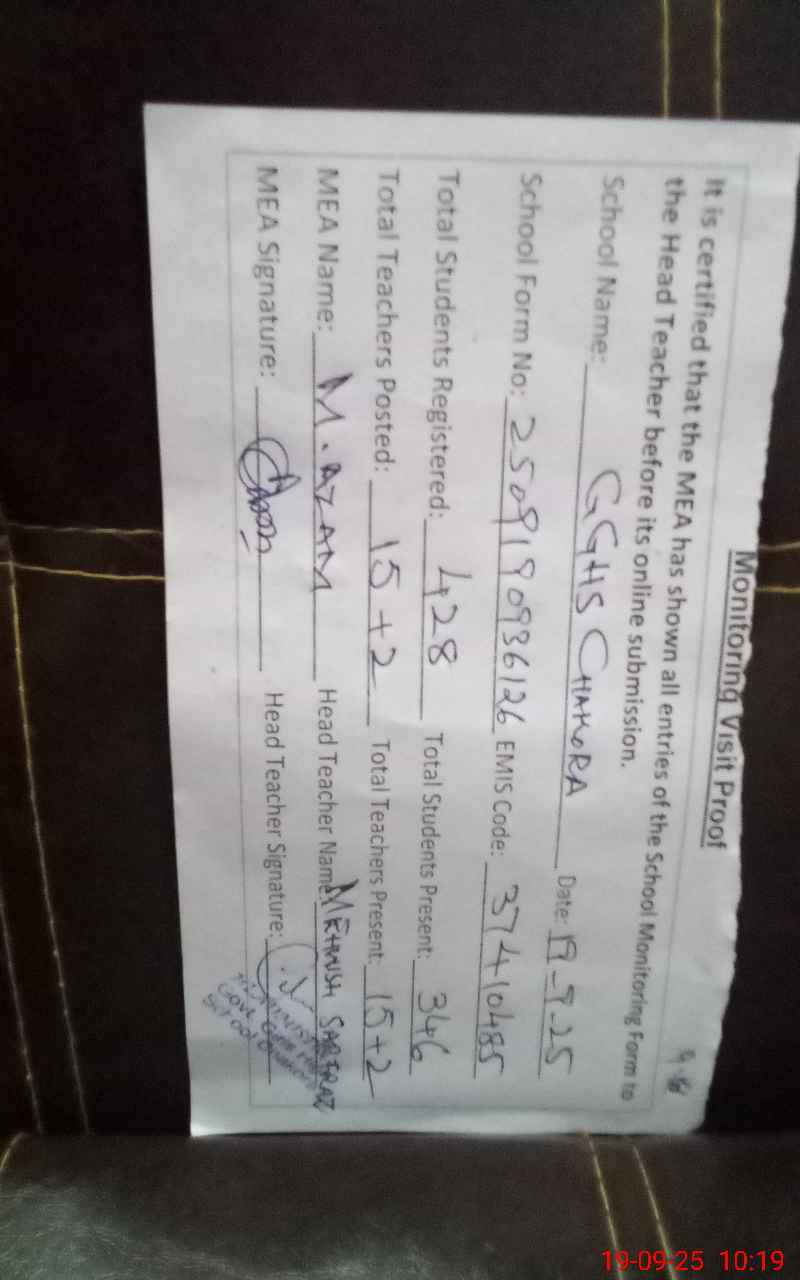 Monitoring Visit Proof
It is certified that the MEA has shown all entries of the School Monitoring Form to
the Head Teacher before its online submission.
School Name: GGHS CHAKORA Date: 19-9-25
School Form No: 2509190936126 EMIS Code: 37410485
Total Students Registered: 428 Total Students Present: 346
Total Teachers Posted: 15+2 Total Teachers Present: 15+2
MEA Name: M. AZAM Head Teacher Name: MEHWISH SARFRAZ
MEA Signature: Head Teacher Signature:
19-09-25 10:19